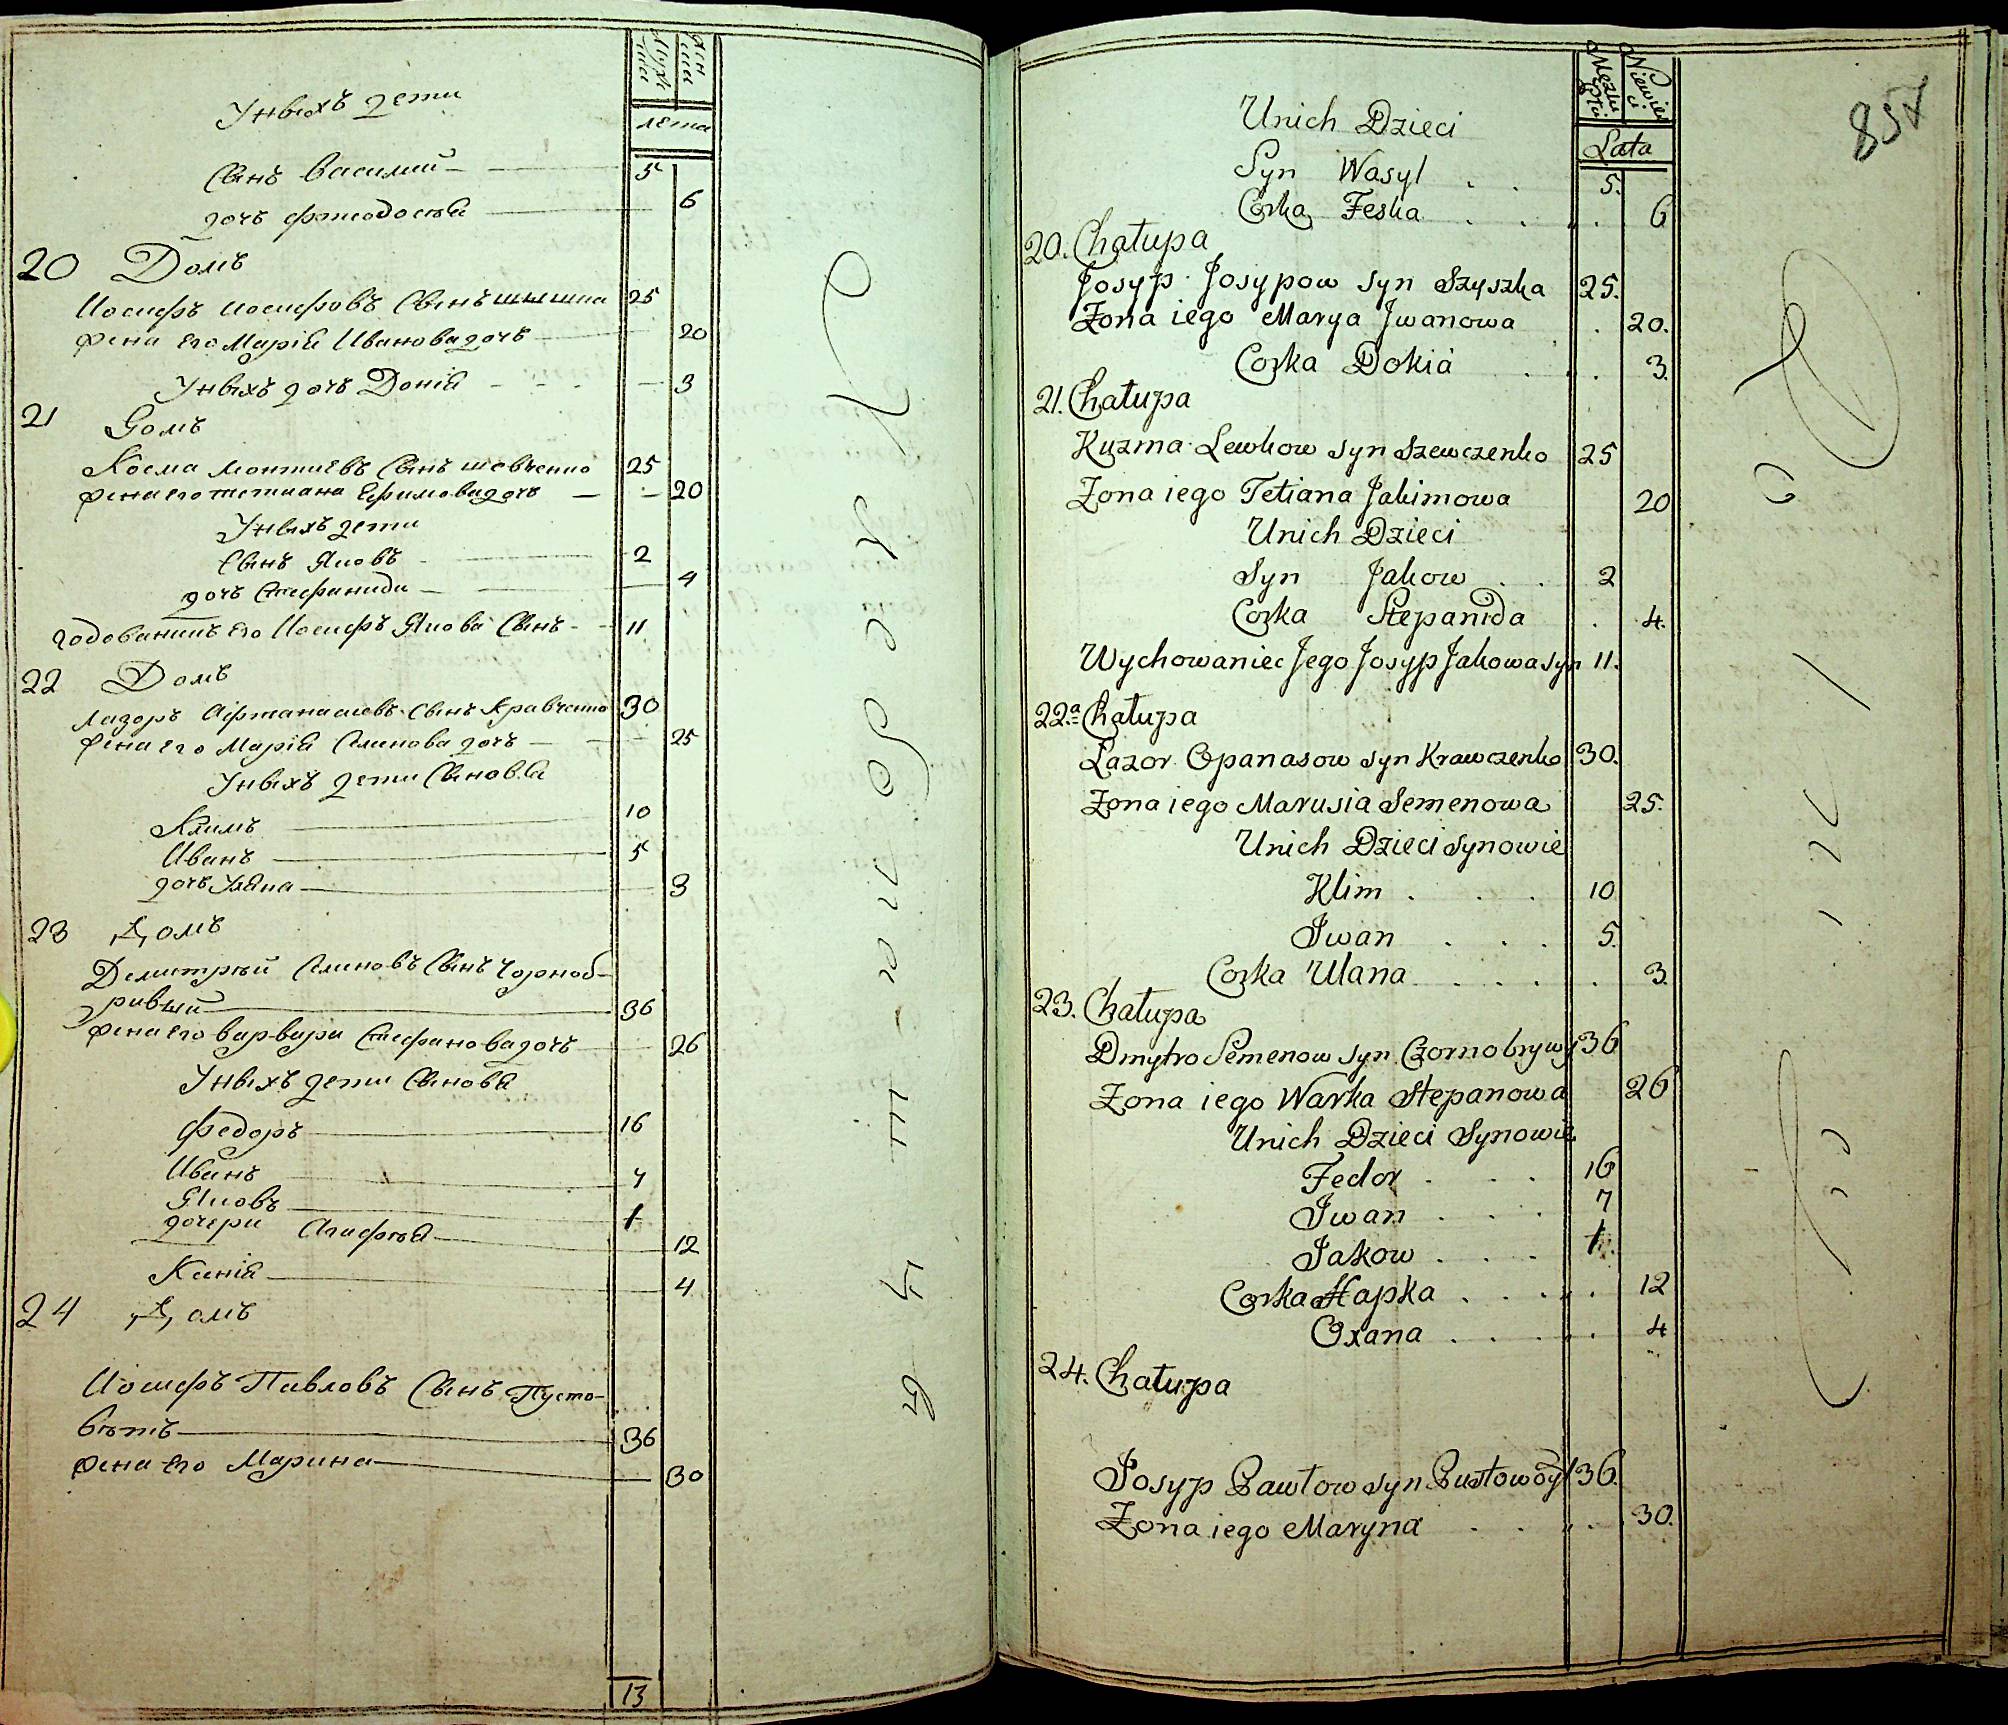 Мужеска
Женска
лета
Унихъ дети
Сынъ Василий 5
дочь Феодосия 6
20 Домъ
Иосифъ Иосифовъ Сынъ шишка 25
жена его Мария Иванова дочь 20
Унихъ дочь Докия 3
21 Домъ
Косма Леонтиевъ Сынъ шевченко 25
жена его тетиана Ефимова дочь 20
Унихъ дети
Сынъ Яковъ 2
дочь Стефанида 4
годованицъ его Иосифъ Якова Сынъ 11
22 Домъ
Лазоръ Афтанасиевъ Сынъ Кравченко 30
жена его Мария Семинова дочь 25
Унихъ дети Синовя
Климъ 10
Иванъ 5
дочь Уляна 3
23 Домъ
Демитрий Семиновъ Сынъ Чорноб-
ривый 36
жена его варвара Стефанова дочь 26
Унихъ дети Синовя
Федоръ 16
Иванъ 7
Яковъ 1
дочери Агафия 12
Ксения 4
24 Домъ
Иосифъ Павловъ Сынъ Пусто-
вѣтъ 36
жена его Марина 30
13
857
Lata
Unich Dzieci
Syn Wasyl 5.
Corka Feska 6
20. Chałupa
Josyp Josypow syn Szyszka 25.
Żona iego Marya Jwanowa 20.
Corka Dokia 3.
21. Chałupa
Kuzma Lewkow syn Szewczenko 25
Żona iego Tetiana Jakimowa 20
Unich Dzieci
Syn Jakow 2
Corka Stepanida 4.
Wychowaniec Jego Josyp Jakowa syn 11.
22.a Chałupa
Łazor Opanasow syn Krawczenko 30.
Żona iego Marusia Semenowa 25.
Unich Dzieci Synowie
Klim 10
Jwan 5.
Corka Ulana 3.
23. Chałupa
Dmytro Semenow syn Czornobrywy 36
Żona iego Warka Stepanowa 26
Unich Dzieci Synowie
Fedor 16
Jwan 7
Jakow 1
Corka Hapka 12
Oxana 4
24. Chałupa
Josyp Pawłow syn Pustowóyt 36.
Żona iego Maryna 30.